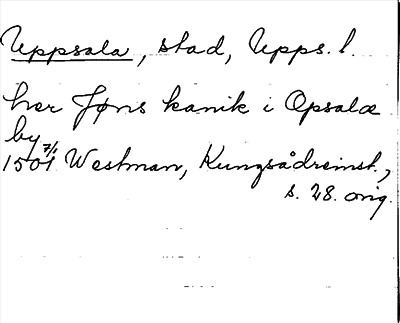 Uppsala, stad, Upps. l.
her Jøns kanik i Opsalæ
by
1501 7/1 Westman, Kungsådreinst.,
s. 28. orig.